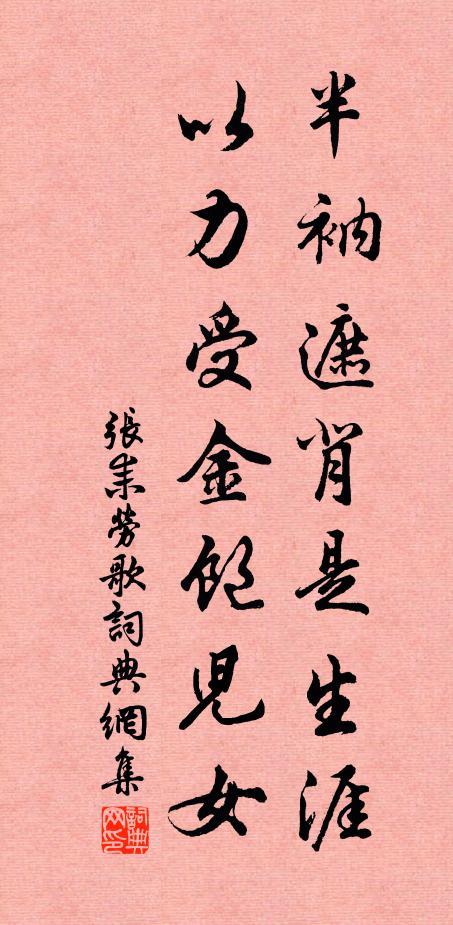 半衲遮背是生涯
以力受金飽兒女
張耒勞歌詞典網集
詞典网印